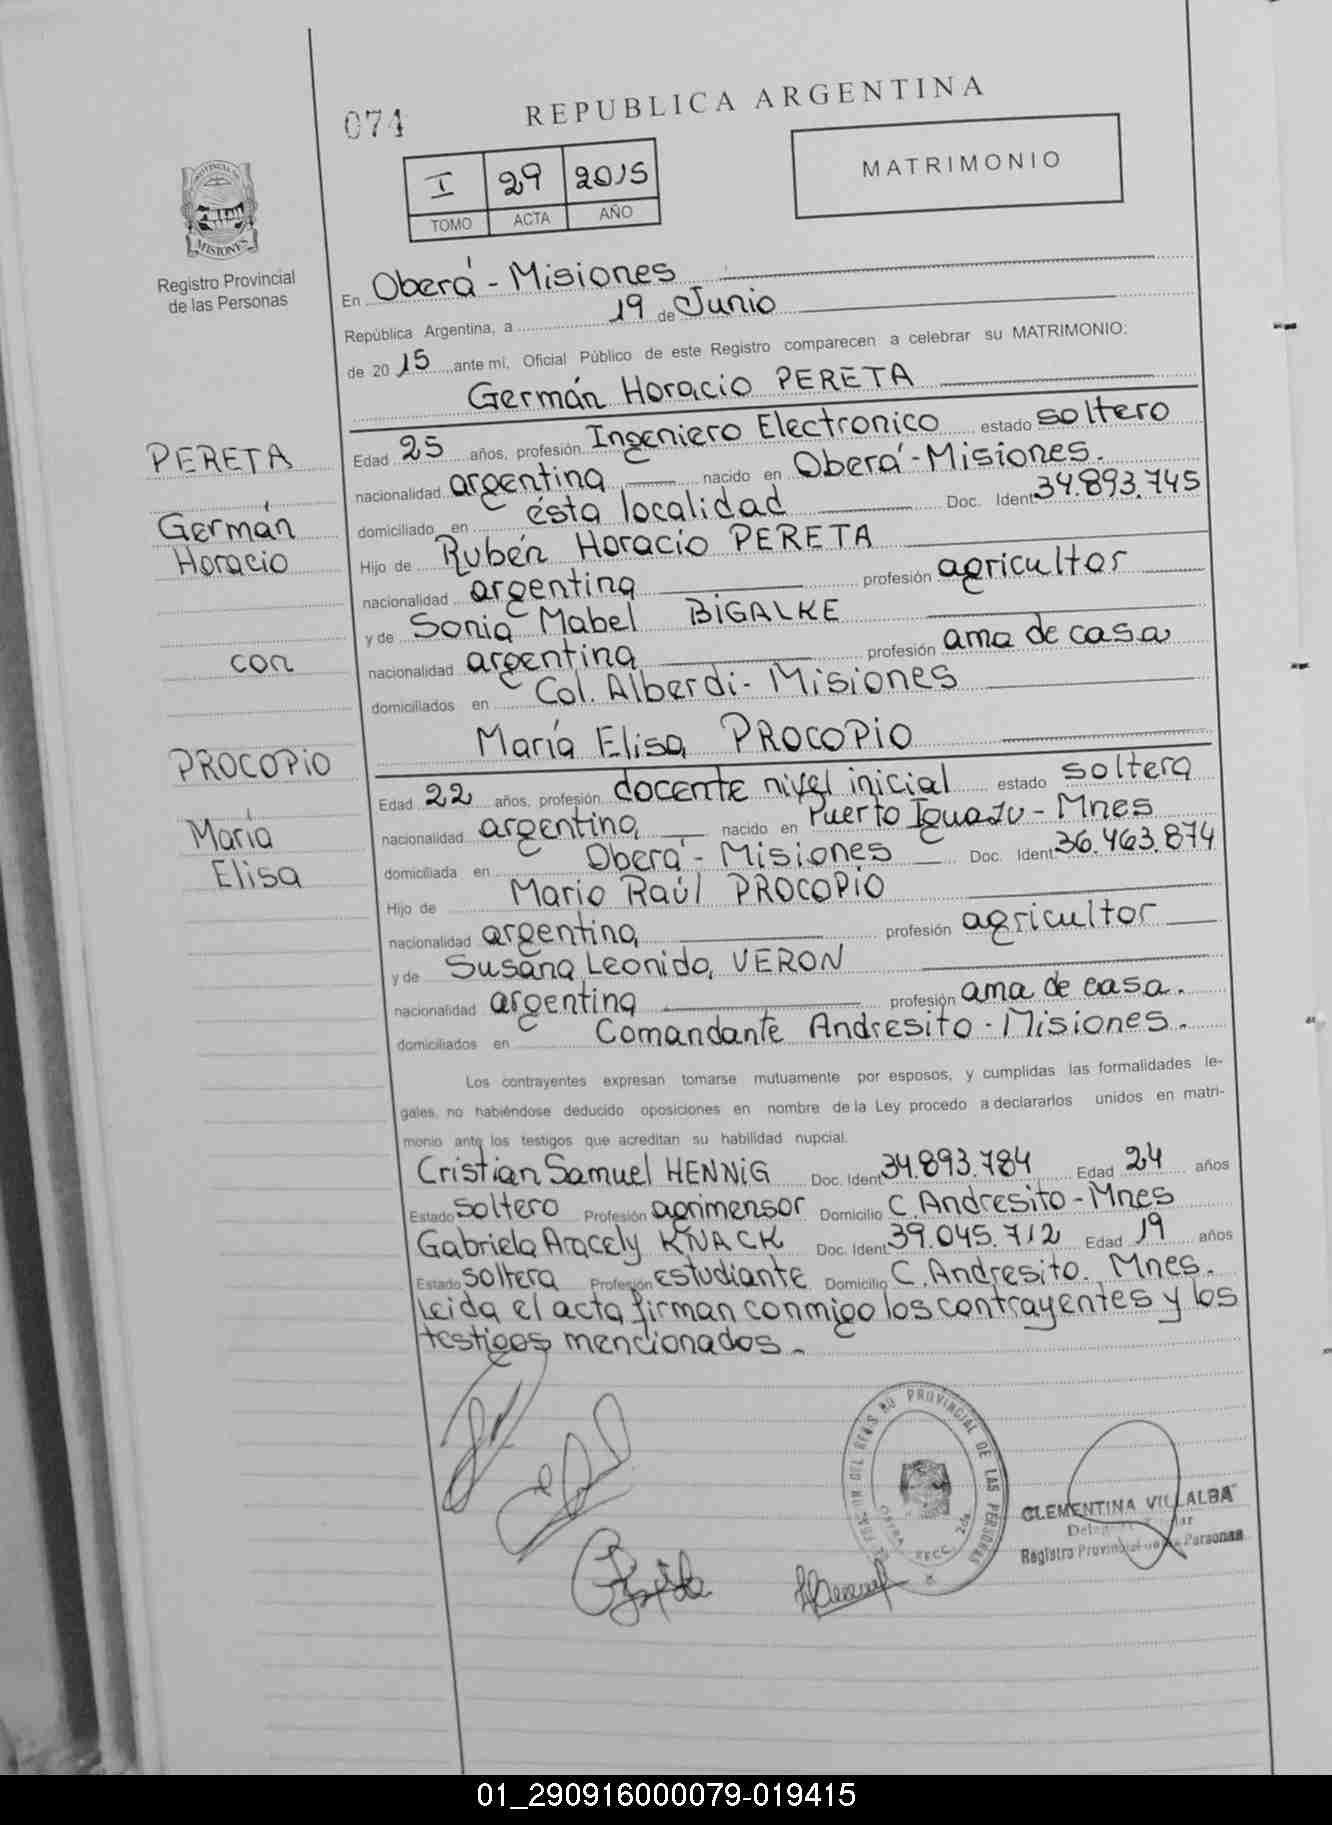 074
REPUBLICA ARGENTINA
I 29 2015
TOMO ACTA AÑO
MATRIMONIO
PROVINCIA DE
MISIONES
Registro Provincial
de las Personas
En Oberá - Misiones
República Argentina, a 19 de Junio
de 2015 ante mí, Oficial Público de este Registro comparecen a celebrar su MATRIMONIO:
Germán Horacio PERETA
PERETA
Germán
Horacio
con
PROCOPIO
María
Elisa
Edad 25 años, profesión Ingeniero Electronico estado soltero
nacionalidad argentina nacido en Oberá - Misiones.
domiciliado en ésta localidad Doc. Ident 34.893.745
Hijo de Rubén Horacio PERETA
nacionalidad argentina profesión agricultor
y de Sonia Mabel BIGALKE
nacionalidad argentina profesión ama de casa
domiciliados en Col. Alberdi - Misiones
María Elisa PROCOPIO
Edad 22 años, profesión docente nivel inicial estado soltera
nacionalidad argentina nacido en Puerto Iguazu - Mnes
domiciliada en Oberá - Misiones Doc. Ident. 36.463.874
Hijo de Mario Raúl PROCOPIO
nacionalidad argentina profesión agricultor
y de Susana Leonida VERON
nacionalidad argentina profesión ama de casa.
domiciliados en Comandante Andresito - Misiones.
Los contrayentes expresan tomarse mutuamente por esposos, y cumplidas las formalidades le-
gales, no habiéndose deducido oposiciones en nombre de la Ley procedo a declararlos unidos en matri-
monio ante los testigos que acreditan su habilidad nupcial.
Cristian Samuel HENNIG Doc. Ident 34.893.784 Edad 24 años
Estado soltero Profesión agrimensor Domicilio C. Andresito - Mnes
Gabriela Aracely KNACK Doc. Ident. 39.045.712 Edad 19 años
Estado soltera Profesión estudiante Domicilio C. Andresito. Mnes.
Leida el acta firman conmigo los contrayentes y los
testigos mencionados.
PROVINCIAL DE LAS PERSONAS
CLEMENTINA VILLALBA
Registro Provincial de las Personas
01_290916000079-019415